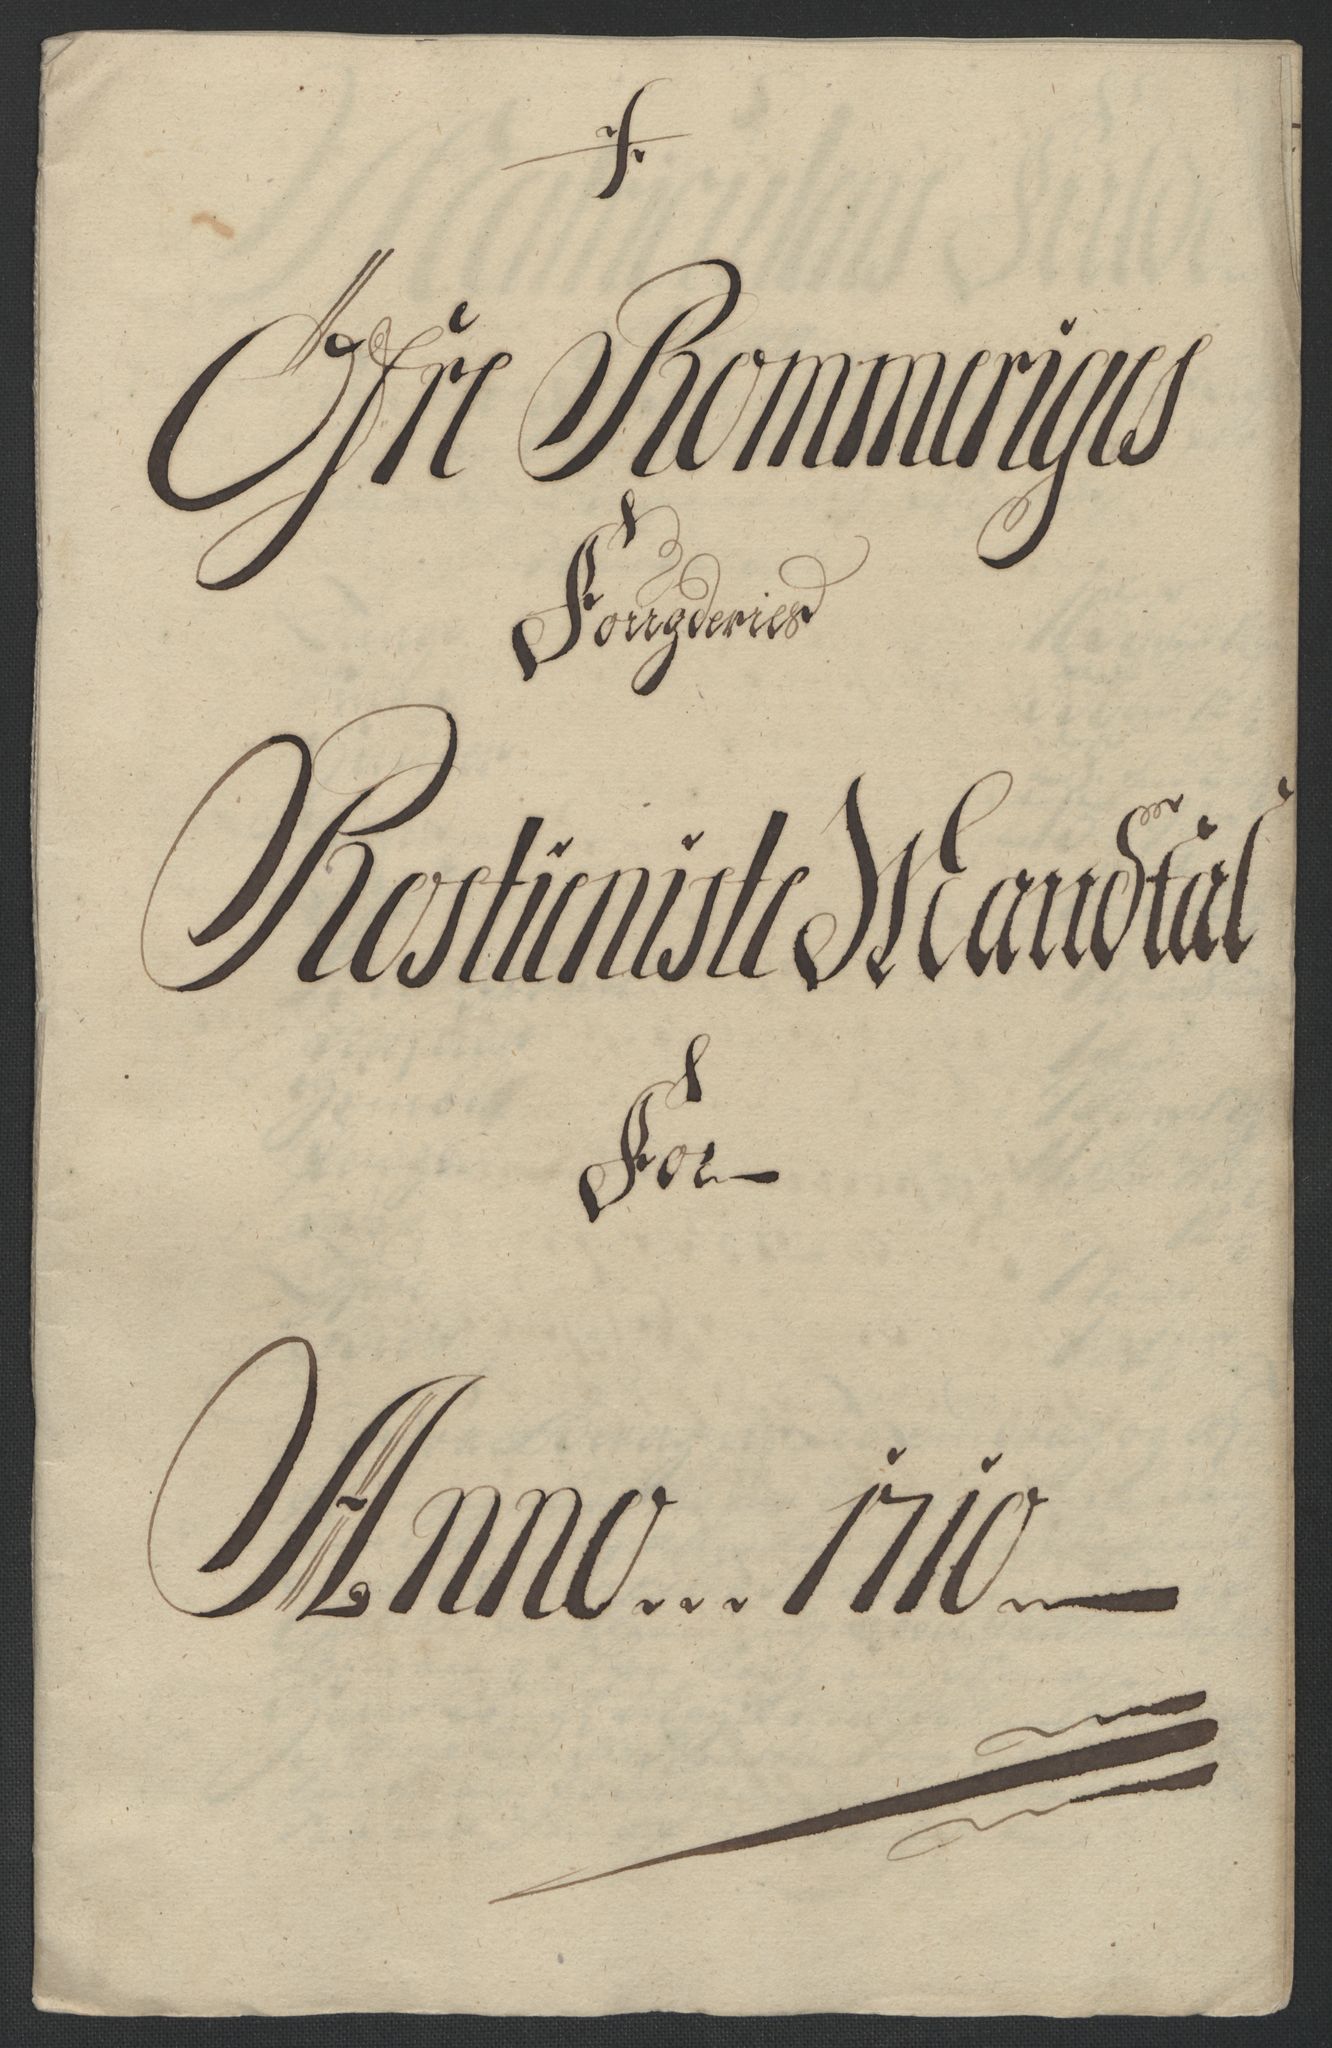 Øfre Rommeriges
Fougderies
Rostieniste Mandtal
For
Anno... 1710